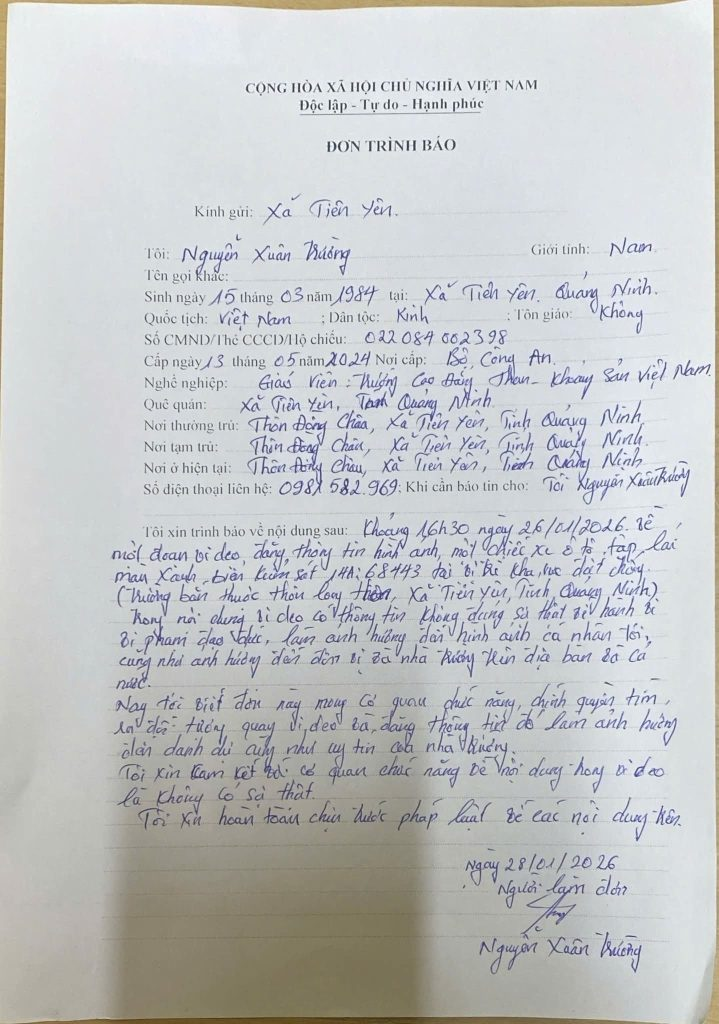 CỘNG HÒA XÃ HỘI CHỦ NGHĨA VIỆT NAM
Độc lập - Tự do - Hạnh phúc
ĐƠN TRÌNH BÁO
Kính gửi: Xã Tiên Yên.
Tôi: Nguyễn Xuân Trường Giới tính: Nam
Tên gọi khác:
Sinh ngày 15 tháng 03 năm 1984 tại: Xã Tiên Yên. Quảng Ninh.
Quốc tịch: Việt Nam ; Dân tộc: Kinh ; Tôn giáo: Không
Số CMND/Thẻ CCCD/Hộ chiếu: 022084002398
Cấp ngày 13 tháng 05 năm 2024 Nơi cấp: Bộ Công An.
Nghề nghiệp: Giáo viên: Trường Cao Đẳng Than - Khoáng Sản Việt Nam.
Quê quán: Xã Tiên Yên, Tỉnh Quảng Ninh.
Nơi thường trú: Thôn Đông Châu, Xã Tiên Yên, Tỉnh Quảng Ninh
Nơi tạm trú: Thôn Đông Châu, Xã Tiên Yên, Tỉnh Quảng Ninh.
Nơi ở hiện tại: Thôn Đông Châu, Xã Tiên Yên, Tỉnh Quảng Ninh
Số điện thoại liên hệ: 0981 582.969; Khi cần báo tin cho: Tôi Nguyễn Xuân Trường
Tôi xin trình báo về nội dung sau: Khoảng 16h30 ngày 26/01/2026. Về
một đoạn vi deo, đăng, thông tin hình ảnh, một chiếc xe ô tô, tập lái
màu xanh, biển kiểm soát 14A: 68443 tại vị trí khu vực đất trống.
(Trường bắn thuộc thôn long, Xã Tiên Yên, Tỉnh, Quảng Ninh)
Trong nội dung vi deo có thông tin không đúng sự thật về hành vi
vi phạm đạo đức, làm ảnh hưởng đến hình ảnh cá nhân tôi,
cũng như ảnh hưởng đến đơn vị và nhà trường trên địa bàn và cả
nước.
Nay tôi viết đơn này mong cơ quan chức năng, chính quyền tìm,
ra đối tượng quay vi deo và, đăng thông tin đó làm ảnh hưởng
đến danh dự cũng như uy tín của nhà trường.
Tôi xin cam kết với cơ quan chức năng về nội dung trong vi deo
là không có sự thật.
Tôi xin hoàn toàn chịu trước pháp luật về các nội dung trên.
Ngày 28/01/2026
Người làm đơn
Nguyễn Xuân Trường